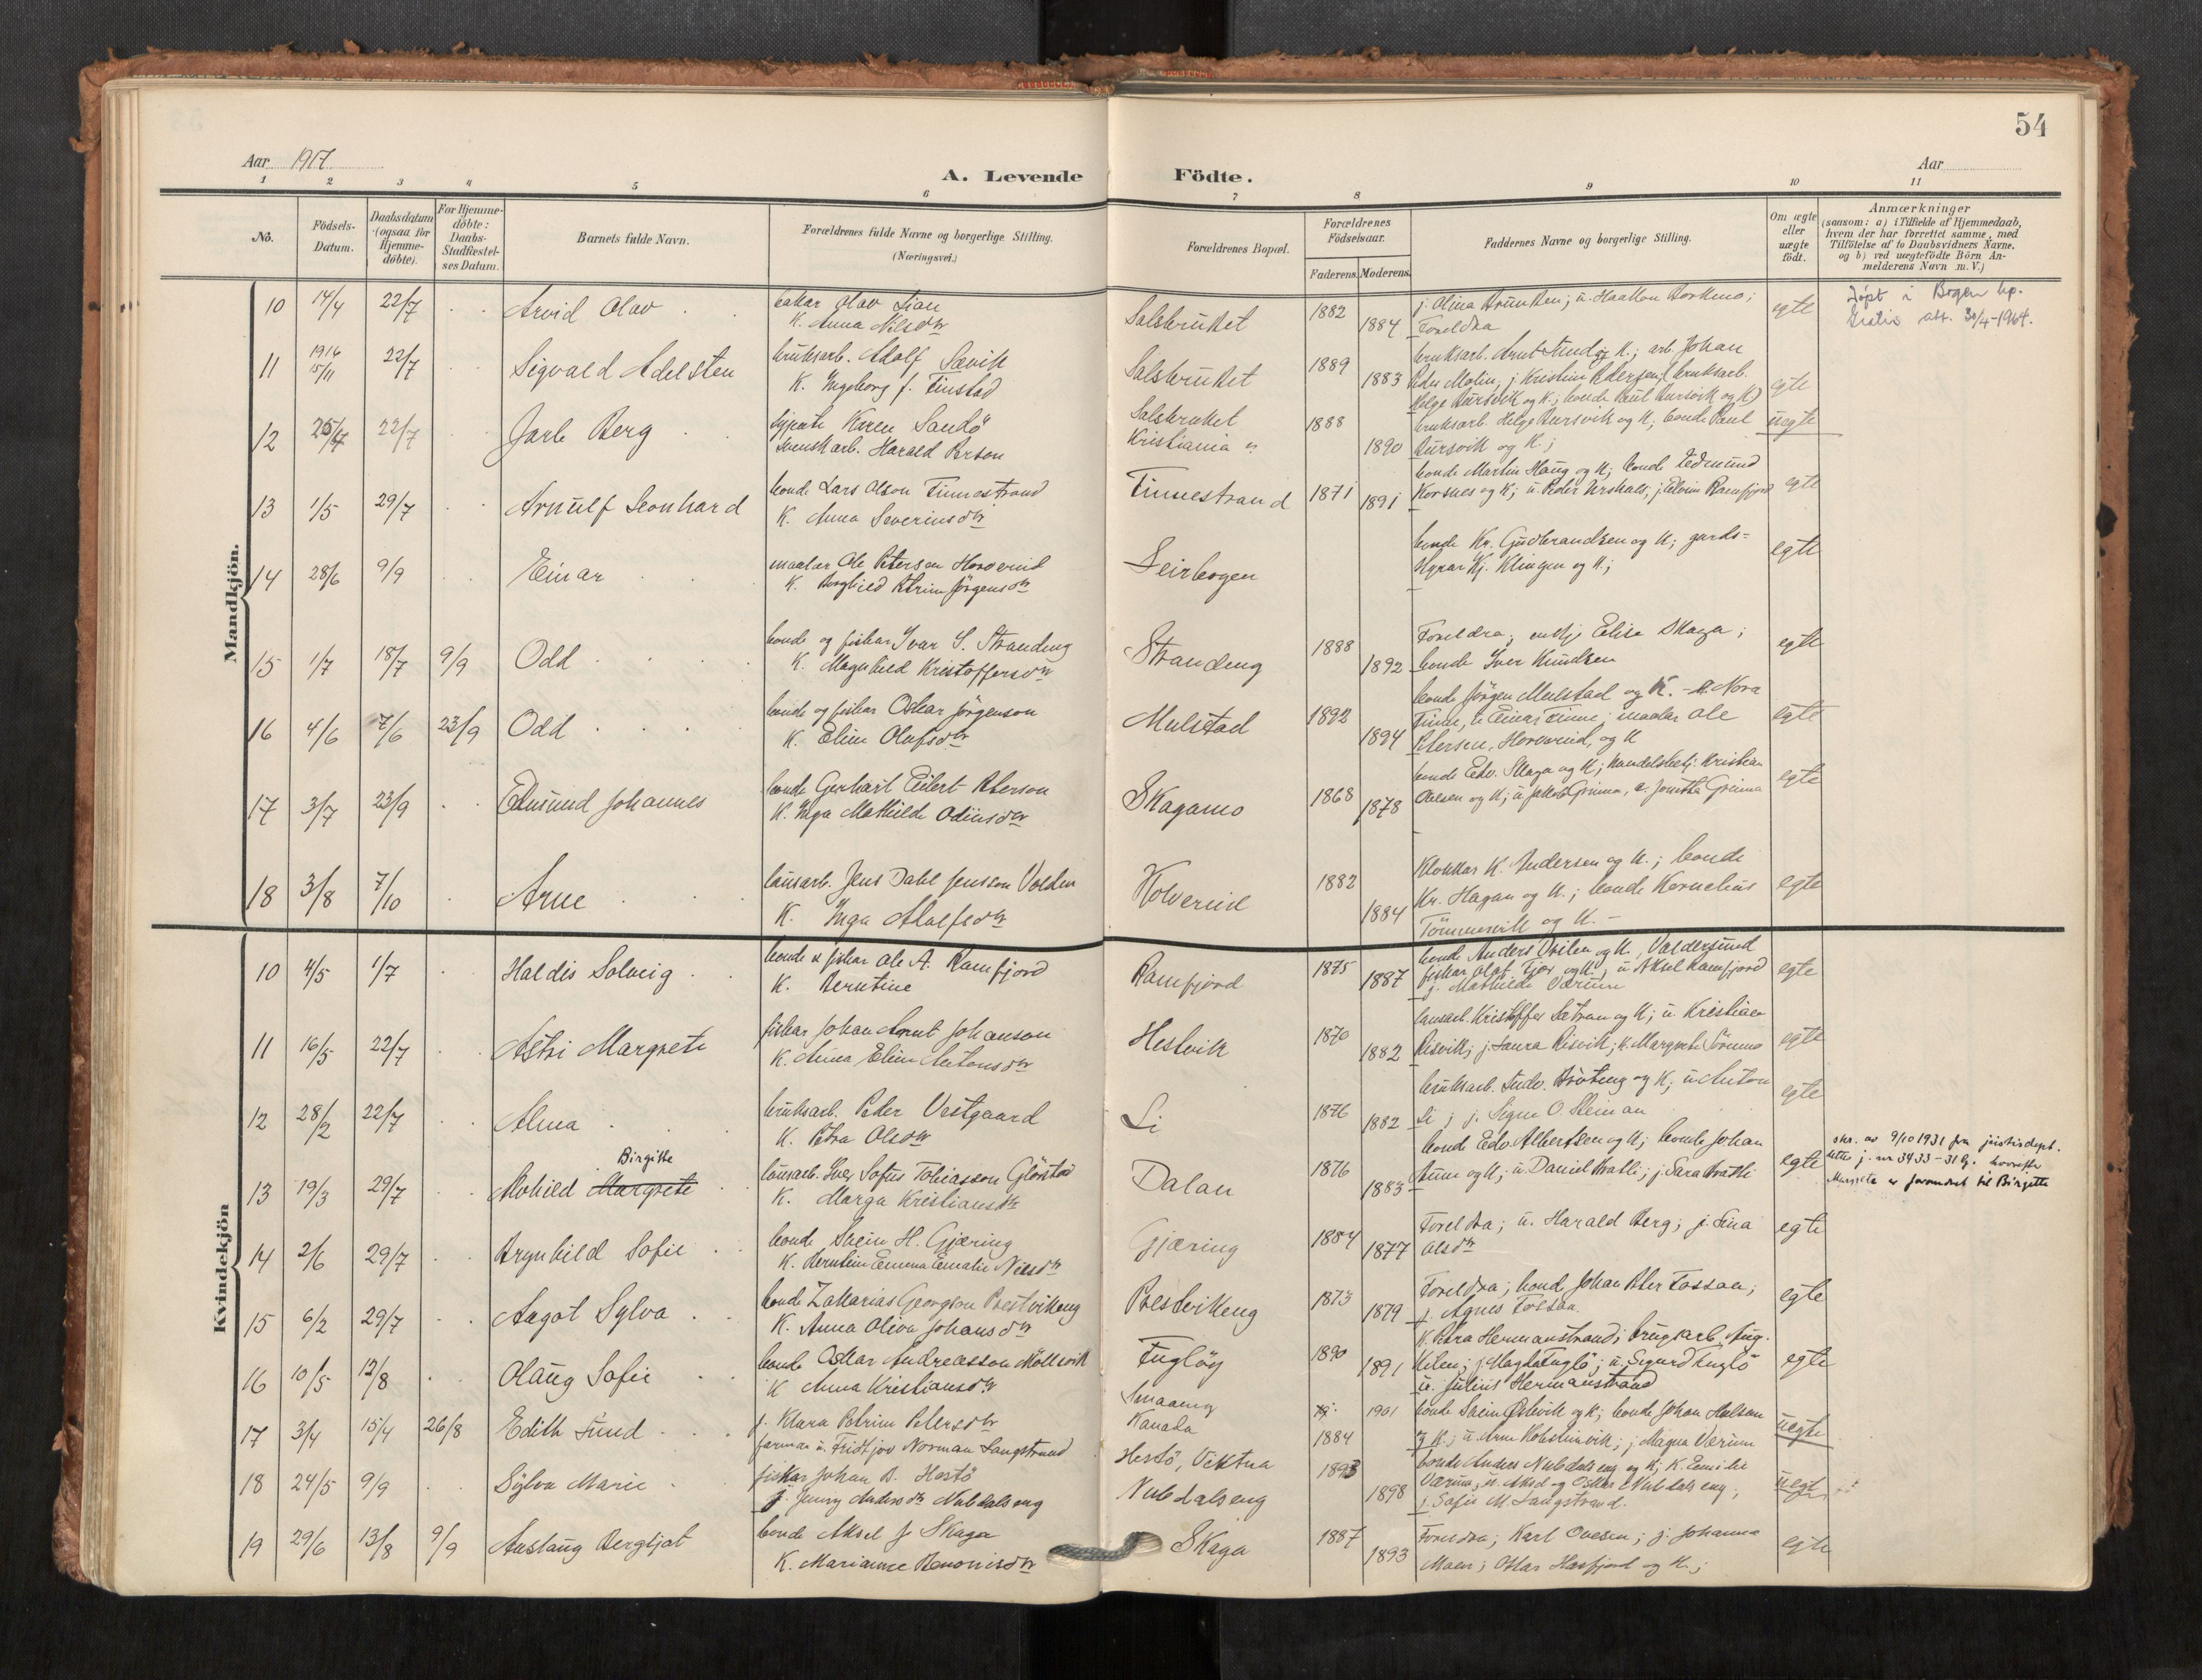 54
Aar 1917
Aar
A. Levende Födte.
1 2 3 4 5 6 7 8 9 10 11
No.
Födsels-Datum.
Daabsdatum (ogsaa for Hjemme-döbte).
For Hjemme-döbte: Daabs-Stadfæstel-ses Datum.
Barnets fulde Navn.
Forældrenes fulde Navne og borgerlige Stilling.
(Næringsvei.)
Forældrenes Bopæl.
Forældrenes Födselsaar.
Faderens. Moderens.
Faddernes Navne og borgerlige Stilling.
Om ægte eller uægte födt.
Anmærkninger
(saasom: a) i Tilfælde af Hjemmedaab,
hvem der har forrettet samme, med
Tilföielse af to Daabsvidners Navne,
og b) ved uægtefödte Börn An-
melderens Navn m. V.)
Mandkjön.
10 14/4 22/7 Arvid Olav
K. Anna Nilsdtr
Salsbruket 1882 1884
Foreldra
egte
att. 30/4-1964.
11 1916 15/11 22/7 Sigvald Adelsten
bruksarb. Adolf Sævik
K. Ingeborg f. Finstad
Salsbruket 1889 1883
bruksarb. ; arb. Johan
Peder Molin; j. Kristine Pedersen; bruksarb.
Helge Aursvik og K.; bonde Paul Aursvik og K
egte
12 22/7 Jarle Berg
Karen Sandö
Harald Person
Salsbruket
Kristiania
1888 1890
bruksarb. Helge Aursvik og K; bonde Paul
Aursvik og K;
uegte
13 1/5 29/7 Arnulf Leonhard
bonde Lars Olson Finnestrand
K. Anna Severinsdtr
Finnestrand 1871 1891
bonde Martin Haug og K; bonde Edmund
Korsnes og K;
egte
14 28/6 9/9 Einar
maalar Ole Peterson
K. Petrine Jörgensdtr
Leirbogen
bonde Kr. Gudbrandsen og K; gards-
Kj. Klingen og K;
egte
15 1/7 18/7 9/9 Odd
bonde og fiskar Ivar S. Strandeng
K. Magnhild Kristoffersdtr
Strandeng 1888 1892
Foreldra; enkje Elise Skaga;
bonde Iver Knudsen
egte
16 4/6 7/6 23/9 Odd
bonde og fiskar Oskar Jörgenson
K. Eline Olufsdtr
Mulstad 1892 1894
bonde Jörgen Mulstad og K. Nora
Finne, u. Einar Finne; maalar Ole
Petersen, og K
egte
17 3/7 23/9 Edmund Johannes
bonde Gerhart Eilert Peterson
K. Inga Mathilde Odinsdtr
Skagamo 1868 1878
bonde Edv. Skaga og K; Kristian
Olelsen og K; u. Jakob Grinna,
egte
18 3/8 7/10 Arne
lausarb. Jens Dahl Jenson Volden
K. Inga Adolfsdtr
Kolvereid 1882 1884
Klokkar K. Andersen og K.; bonde
Kr. Hagan og K.; bonde Kornelius
Tönnesvik og K.
egte
Kvindekjön
10 4/5 1/7 Haldis Solveig
bonde & fiskar Ole A. Ramfjord
K. Berntine
Ramfjord 1875 1887
bonde Anders og K., Valdersund
fiskar Olaf og K., u. Aksel Ramfjord
j. Mathilde Værum
egte
11 16/5 22/7 Astri Margrete
fiskar Johan Arnt Johanson
K. Anna Eline Antonsdtr
Hestvik 1870 1882
lausarb. Kristoffer Sætran og K; u. Kristian
Risvik; j. Laura Risvik; K. Margrete
egte
12 28/2 22/7 Alma
bruksarb. Peder Vestgaard
K. Petra Olsdtr
Li 1876 1882
bruksarb. Ludv. og K; u. Anton
Li; j. Signe O. Steinan
egte
13 19/3 29/7 Mohild Margrete
Birgitte
lausarb. Sofus Tobiasson
K. Marga Kristiansdtr
Dalan 1876 1883
bonde Edv. Albertsen og K; bonde Johan
Aune og K; u. Daniel Bratli; j. Sara Bratli
egte
skr. av 9/10 1931 fra justisdept.
j. nr 3433-31 hvorefter
Margrete er forandret til Birgitte
14 2/6 29/7 Brynhild Sofie
bonde Svein H. Gjæring
K. Emma Emalie Nilsdtr
Gjæring 1884 1877
Foreldra; u. Harald Berg; j. Lina
Olsdtr
egte
15 6/2 29/7 Aagot Sylva
bonde Zakarias Georgson Prestvikeng
K. Anna Oliva Johansdtr
Prestvikeng 1873 1879
Foreldra; bonde Johan Peter Fossaa;
j. Agnes Fossaa.
egte
16 10/5 12/8 Olaug Sofie
bonde Oskar Andreasson Möllevik
K Anna Kristiansdtr
Fuglöy 1890 1891
K. Petra Hermanstrand; brugsarb. Aug.
j. Magda Fuglö; u. Sigurd Fuglö
u. Julius Hermanstrand
egte
17 3/4 15/4 26/8 Edith Lund
j. Klara Petrine Petersdtr
farmar u. Fridtjov Norman Langstrand
Kanada
1901 1884
bonde Svein og K; bonde Johan
og K.; u. Arne; j. Magna Værum
uegte
18 24/5 9/9 Sylva Marie
fiskar Johan B. Hestö
j. Jenny Andersdtr Nubdalseng
Hestö, Viktna
Nubdalseng
1893 1898
bonde Anders Nubdalseng og K; K. Emilie
Værum; u. Aksel og Oskar Nubdalseng;
j. Sofie M. Langstrand.
uegte
19 29/6 13/8 9/9 Aaslaug Bergljot
bonde Aksel J Skaga
K. Marianne Benonisdtr
Skaga 1887 1893
Foreldra; Karl Ovesen; j. Johanna
Moen; Oskar Haafjord og K.;
egte